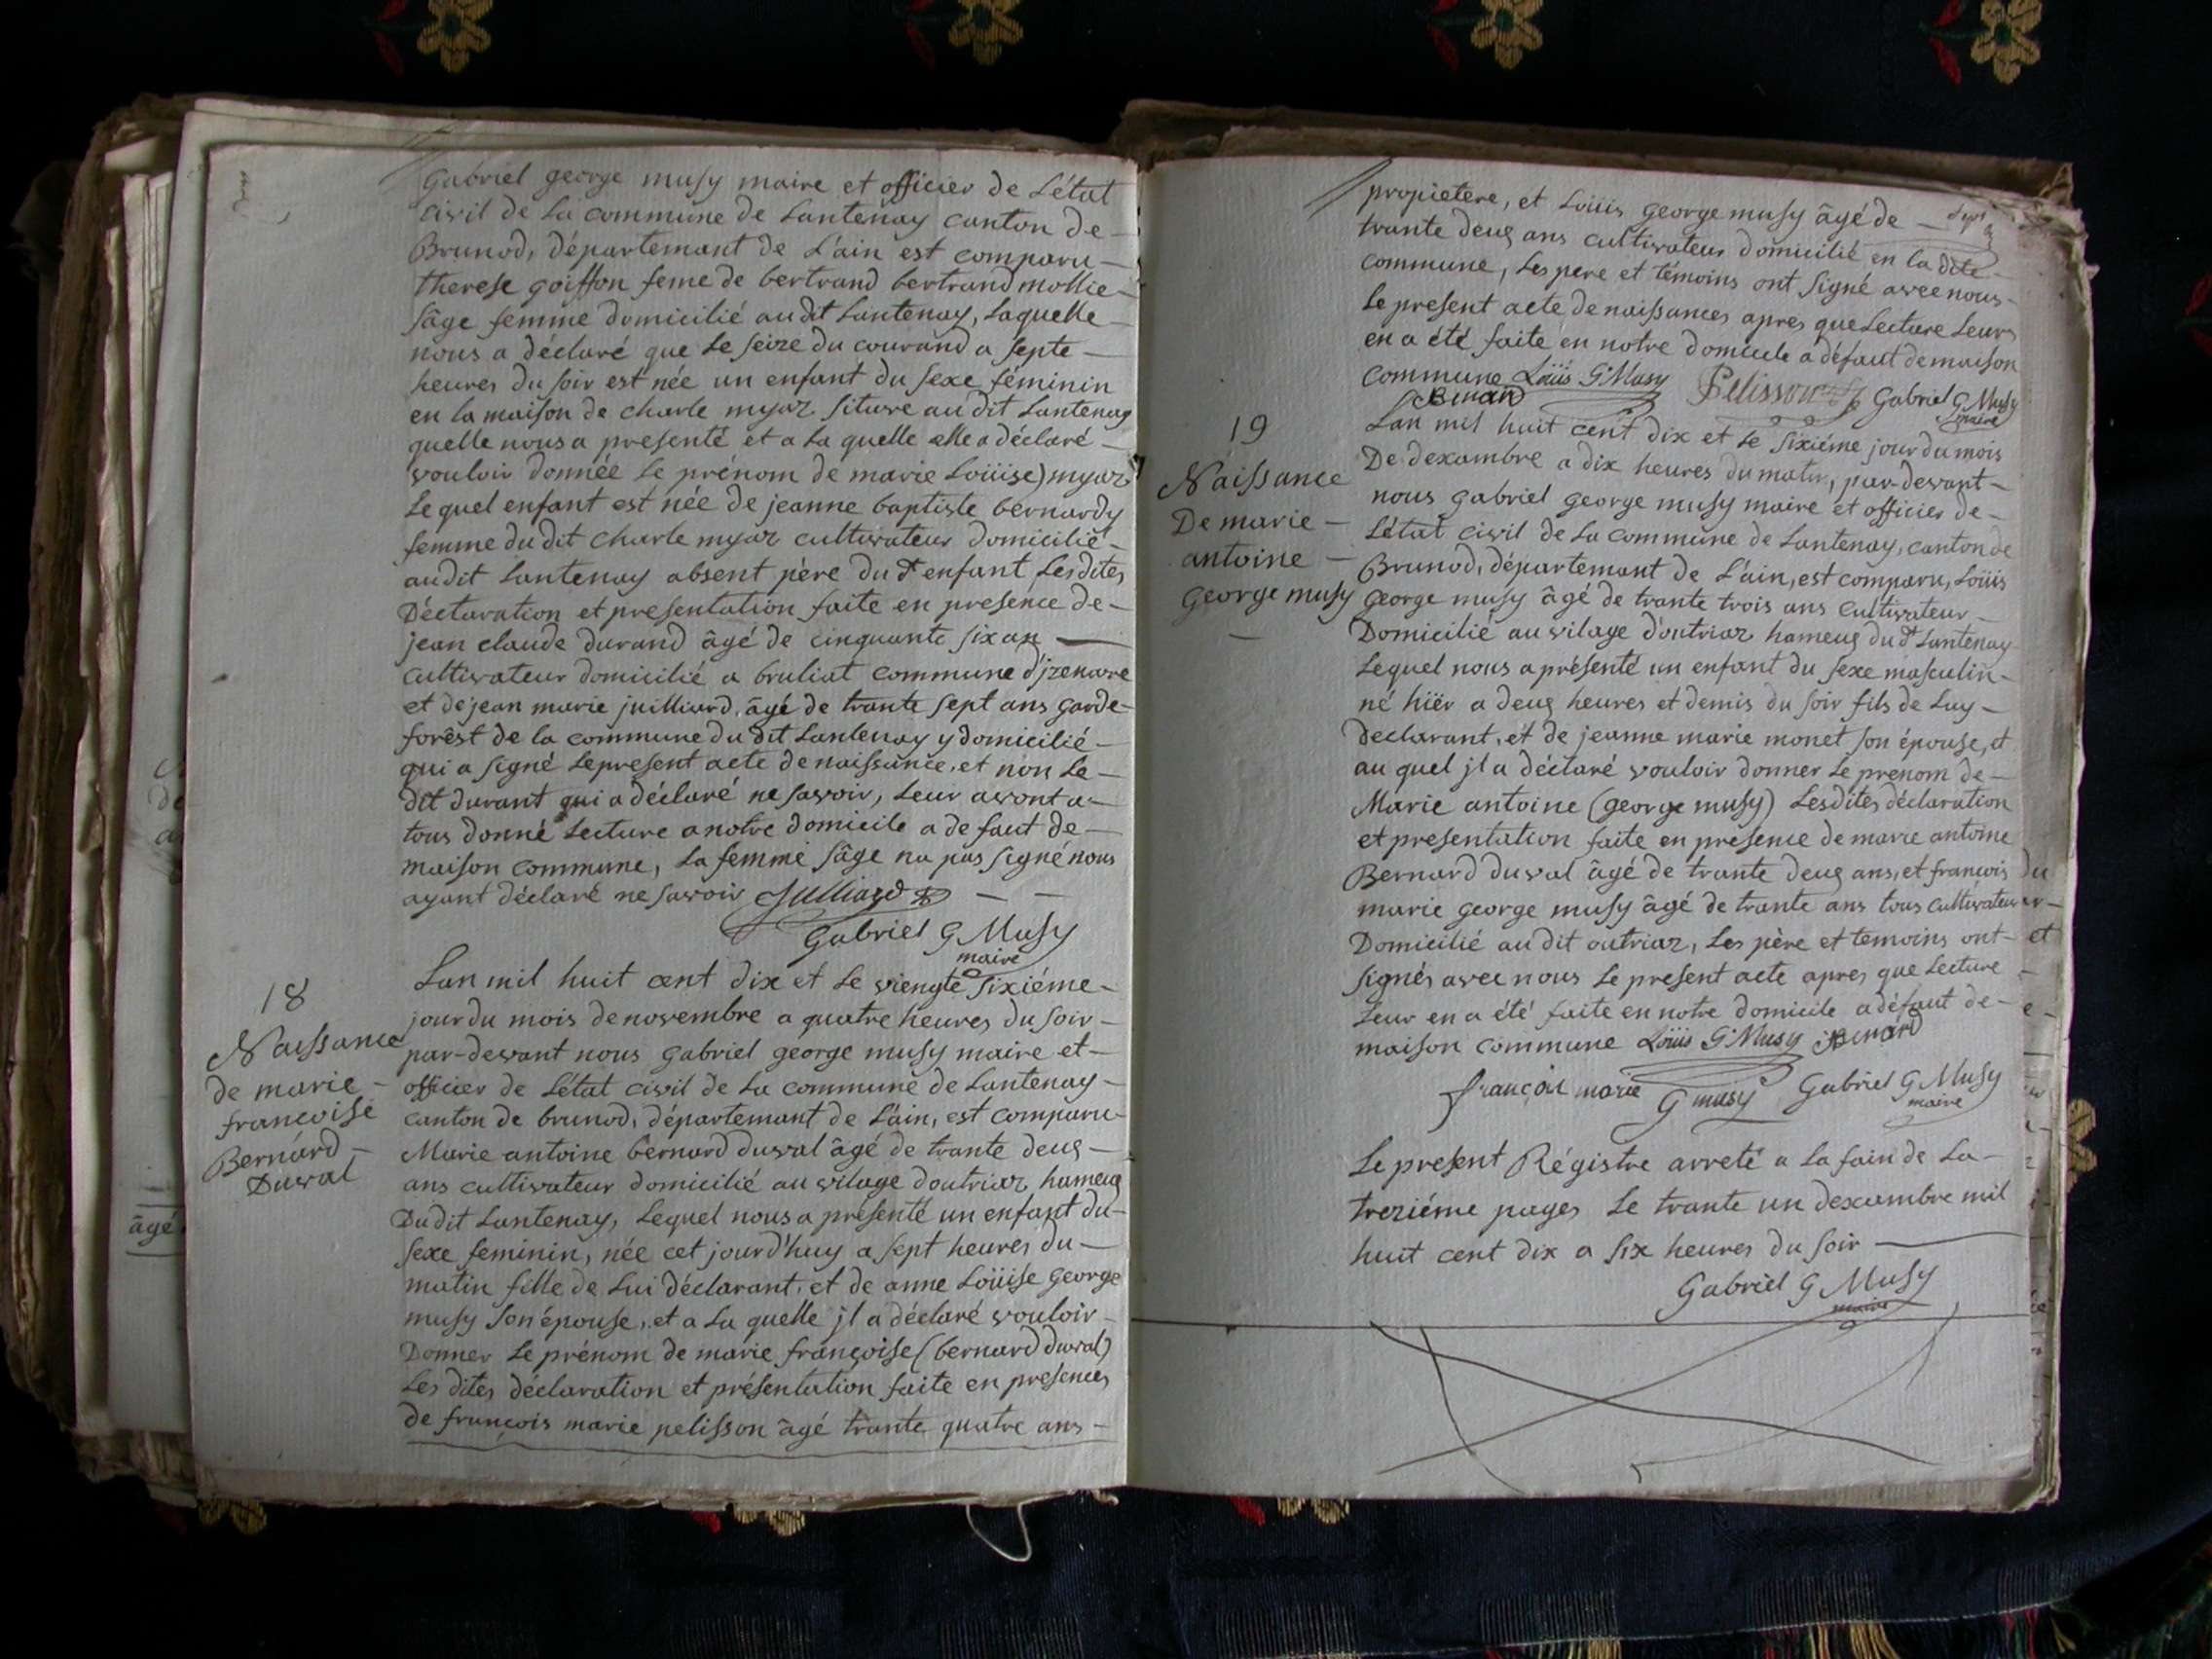 Gabriel george musy maire et officier de L'état
civil de La commune de Lantenay canton de
Brunod, départemant de L'ain est comparu
therese goiffon feme de bertrand bertrand mollie
sâge femme domicilié audit Lantenay, Laquelle
nous a déclaré que Le seize du courand a septe
heures du soir est née un enfant du sexe féminin
en la maison de charle myaz siture au dit Lantenay
quelle nous a presenté et a La quelle elle a déclaré
vouloir donnée Le prénom de marie Loüise) myaz
Le quel enfant est née de jeanne baptiste bernardy
femme du dit charle myaz cultivateur domicilié
audit Lantenay absent père du dt enfant Lesdites
Déclaration et presentation faite en presence de
jean claude durand âgé de cinquante six an
cultivateur domicilié a bruliat commune d'jzenavre
et de jean marie juilliard, âgé de trante sept ans garde
forêst de la commune du dit Lantenay y domicilié
qui a signé Lepresent acte de naissance, et non Le
dit durant qui a déclaré ne savoir, Leur avont a
tous donné Lecture a notre domicile a defaut de
maison commune, La femme sâge na pas signé nous
ayant déclaré ne savoir Julliard
Gabriel G Musy
maire
18
Naissance
de marie
françoise
Bernard
Duval
Lan mil huit cent dix et Le viengte sixiéme
jour du mois de novembre a quatre heures du soir
par-devant nous gabriel george musy maire et
officier de L'état civil de La commune de Lantenay
canton de brunod, départemant de L'ain, est comparu
Marie antoine bernard duval âgé de trante deus
ans cultivateur domicilié au vilage doutriaz hameus
Dudit Lantenay, Lequel nous a présenté un enfant du
sexe feminin, née cet jourd'huy a sept heures du
matin fille de Lui déclarant, et de anne Loüise george
musy son épouse, et a La quelle jl a déclaré vouloir
Donner Le prénom de marie françoise (bernard duval)
Les dites déclaration et présentation faite en presences
de françois marie pelisson âgé trante quatre ans
propietere, et Loüis george musy âgé de
trante deus ans cultivateur domicilié en la dite
commune, Les pere et témoins ont signé avec nous
Le present acte de naissances apres que Lecture Leurs
en a été faite en notre domicile a défaut de maison
commune Loüis G Musy Pelisson Gabriel G Musy
maire
19
Naissance
De marie
antoine
george musy
Lan mil huit cent dix et Le sixiéme jour du mois
De dexambre a dix heures du matin, par-devant
nous gabriel george musy maire et officier de
L'état civil de La commune de Lantenay, canton de
Brunod, départemant de L'ain, est comparu, Loüis
george musy âgé de trante trois ans cultivateur
Domicilié au vilage d'outriaz hameus du dt Lantenay
Lequel nous a présenté un enfant du sexe masculin
né hiër a deus heures et demis du soir fils de Luy
declarant, et de jeanne marie monet son épouse, et
au quel jl a déclaré vouloir donner Le prenom de
Marie antoine (george musy) Lesdites déclaration
et presentation faite en presence de marie antoine
Bernard duval âgé de trante deus ans, et francois
marie george musy âgé de trante ans tous cultivateur
Domicilié au dit outriaz, Les père et temoins ont
signés avec nous Le present acte apres que Lecture
Leur en a été faite en notre domicile a défaut de
maison commune Loüis G Musy
françois marie G musy Gabriel G Musy
maire
Le present Régistre arreté a La fain de La
treziéme pages Le trante un dexambre mil
huit cent dix a six heures du soir
Gabriel G Musy
maire